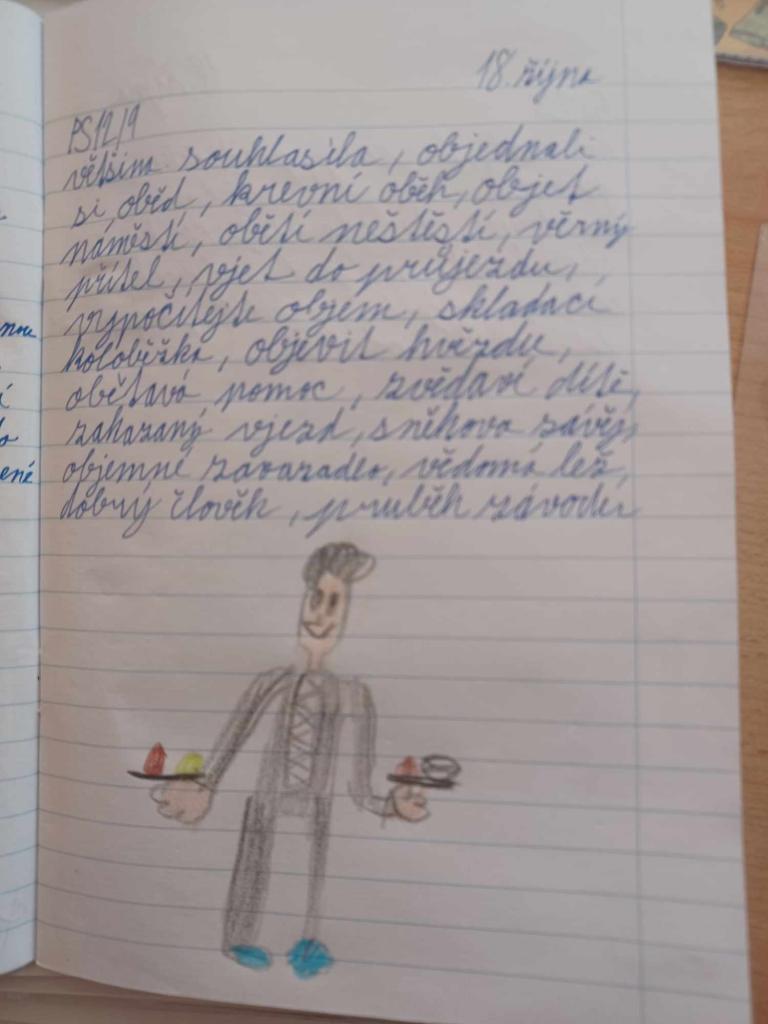 18. října
PS12/9
většina souhlasila, objednali
si oběd, krevní oběh, objet
náměstí, obětí neštěstí, věrný
přítel, vjet do průjezdu,
vypočítejte objem, skladací
koloběžka, objevit hvězdu,
obětavá pomoc, zvědaví dítě,
zakazaný vjezd, sněhova závěj,
objemné zavazadlo, vědomá lež,
dobrý člověk, pruběh závodu
ené